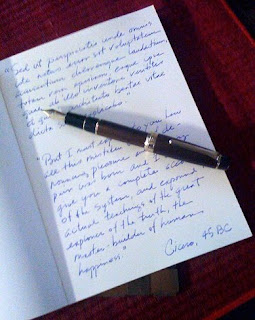 "Sed ut perspiciatis unde omnis
iste natus error sit voluptatem
accusantium doloremque laudantium,
totam rem aperiam, eaque ipsa
quae ab illo inventore veritatis
et quasi architecto beatae vitae
dicta sunt explicabo."
"But I must explain to you how
all this mistaken idea of de-
nouncing pleasure and
pain was born and I will
give you a complete acct
of the system, and expound
actual teachings of the great
explorer of the truth, the
master-builder of human
happiness."
Cicero, 45 BC